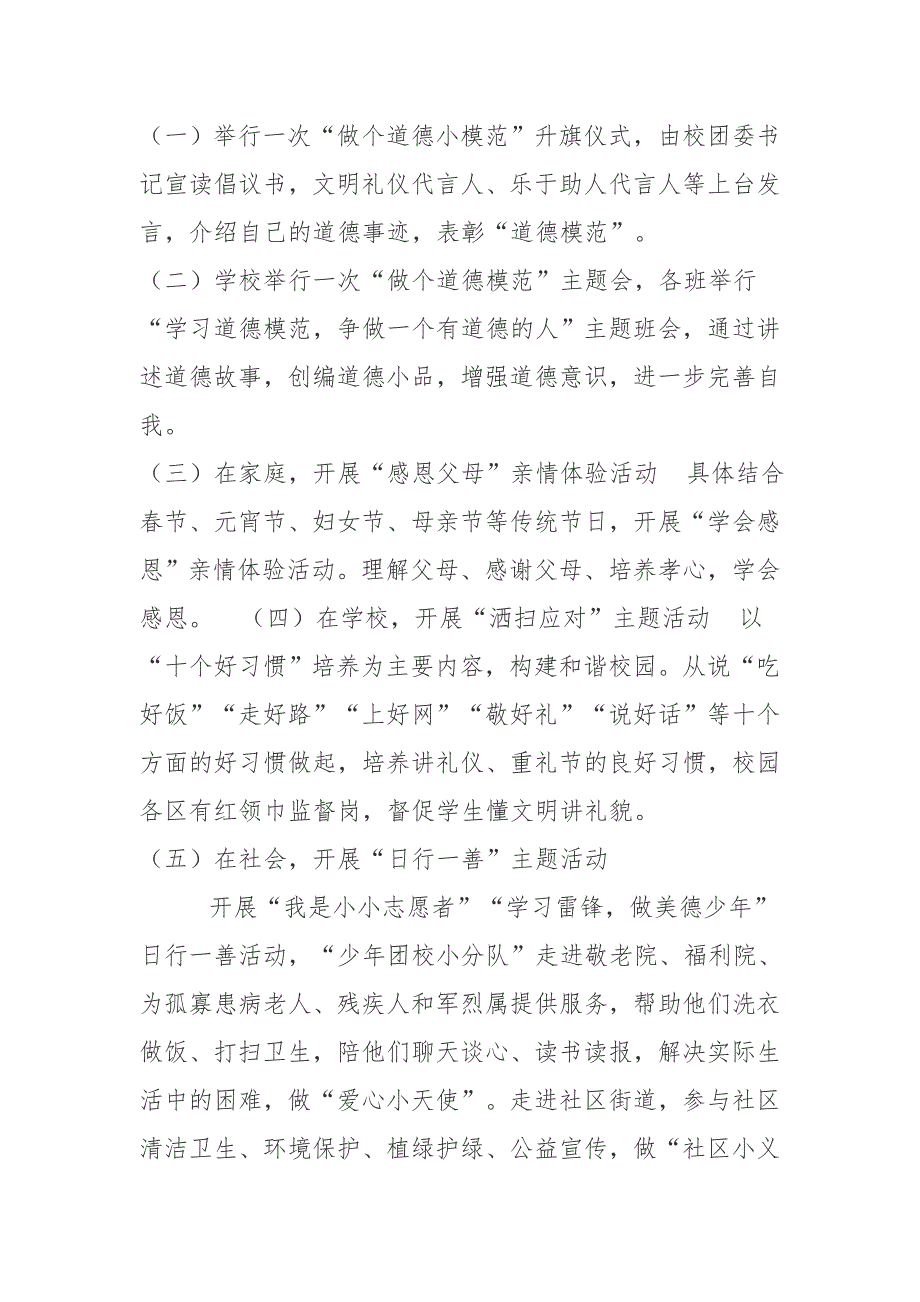 （一）举行一次“做个道德小模范”升旗仪式，由校团委书
记宣读倡议书，文明礼仪代言人、乐于助人代言人等上台发
言，介绍自己的道德事迹，表彰“道德模范”。
（二）学校举行一次“做个道德模范”主题会，各班举行
“学习道德模范，争做一个有道德的人”主题班会，通过讲
述道德故事，创编道德小品，增强道德意识，进一步完善自
我。
（三）在家庭，开展“感恩父母”亲情体验活动　具体结合
春节、元宵节、妇女节、母亲节等传统节日，开展“学会感
恩”亲情体验活动。理解父母、感谢父母、培养孝心，学会
感恩。　（四）在学校，开展“洒扫应对”主题活动　以
“十个好习惯”培养为主要内容，构建和谐校园。从说“吃
好饭”“走好路”“上好网”“敬好礼”“说好话”等十个
方面的好习惯做起，培养讲礼仪、重礼节的良好习惯，校园
各区有红领巾监督岗，督促学生懂文明讲礼貌。
（五）在社会，开展“日行一善”主题活动
开展“我是小小志愿者”“学习雷锋，做美德少年”
日行一善活动，“少年团校小分队”走进敬老院、福利院、
为孤寡患病老人、残疾人和军烈属提供服务，帮助他们洗衣
做饭、打扫卫生，陪他们聊天谈心、读书读报，解决实际生
活中的困难，做“爱心小天使”。走进社区街道，参与社区
清洁卫生、环境保护、植绿护绿、公益宣传，做“社区小义